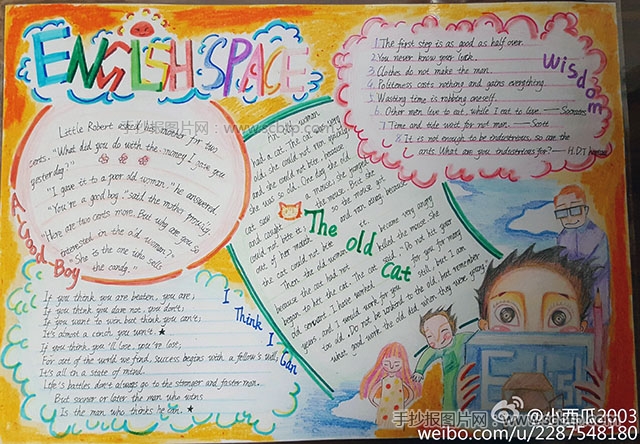 ENGLISH SPACE
Wisdom
1. The first step is as good as half over.
2. You never know your luck.
3. Clothes do not make the man.
4. Politeness costs nothing and gains everything.
5. Wasting time is robbing oneself.
6. Other men live to eat, while I eat to live —— Socrates
7. Time and tide wait for no man. —— Scott
8. It is not enough to be industrious, so are the
ants. What are you industrious for? —— H.D.T
A Good Boy
Little Robert asked his mother for two
cents. "What did you do with the money I gave you
yesterday?"
"I gave it to a poor old woman," he answered.
"You're a good boy," said the mother proudly.
"Here are two cents more. But why are you so
interested in the old woman?"
"She is the one who sells
the candy."
The old cat
An old woman
had a cat. The cat was very
old; she could not run quickly,
and she could not bite, because
she was so old. One day the old
cat saw a mouse; she jumped
and caught the mouse. But she
could not bite it; so the mouse got
out of her mouth and ran away, because
the cat could not bite it.
Then the old woman became very angry
because the cat had not killed the mouse. She
began to hit the cat. The cat said, "Do not hit your
old servant. I have worked for you for many
years, and I would work for you still, but I am
too old. Do not be unkind to the old, but remember
what good work the old did when they were young."
I Think I Can
If you think you are beaten, you are;
If you think you dare not, you don't;
If you want to win but think you can't;
It's almost a cinch you won't.
If you think you'll lose, you're lost;
For out of the world we find, success begins with a fellow's will;
It's all in a state of mind.
Life's battles don't always go to the stronger and faster man.
But sooner or later the man who wins
Is the man who thinks he can.
手抄报图片网：www.scbtp.com
手抄报图片网
@小西瓜2003
weibo.com/u/2287548180